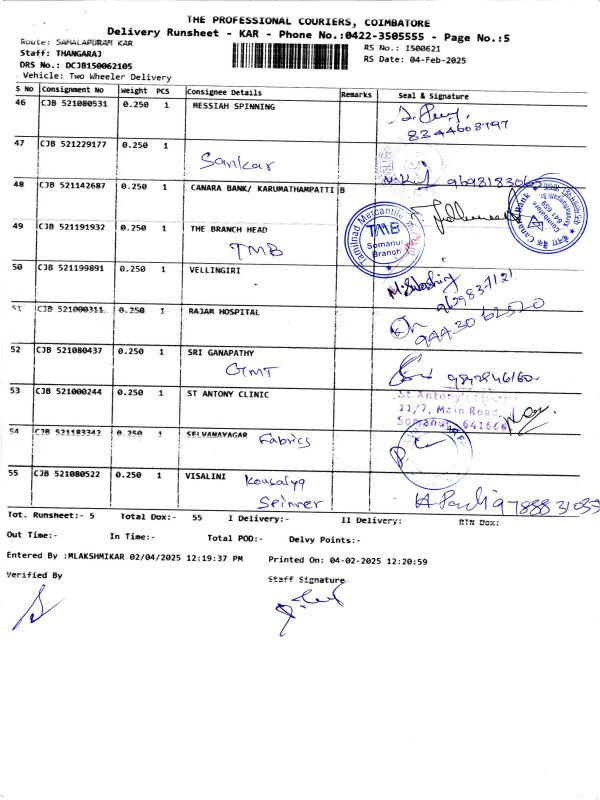 THE PROFESSIONAL COURIERS, COIMBATORE
Delivery Runsheet - KAR - Phone No.:0422-3505555 - Page No.:5
Route: SAMALAPURAM KAR
RS No.: 1500621
Staff: THANGARAJ
RS Date: 04-Feb-2025
DRS No.: DCJB150062105
Vehicle: Two Wheeler Delivery
S No Consignment No Weight PCS Consignee Details Remarks Seal & Signature
46 CJB 521080531 0.250 1 MESSIAH SPINNING
8344603797
47 CJB 521229177 0.250 1
Sankar
48 CJB 521142687 0.250 1 CANARA BANK/ KARUMATHAMPATTI B
Canara Bank
49 CJB 521191932 0.250 1 THE BRANCH HEAD
TMB
Tamilnad Mercantile
TMB
Somanur
Branch
50 CJB 521199891 0.250 1 VELLINGIRI
9629837121
51 CJB 521000311 0.250 1 RAJAM HOSPITAL
9443062520
52 CJB 521080437 0.250 1 SRI GANAPATHY
GMT
53 CJB 521000244 0.250 1 ST ANTONY CLINIC
St. Antony's
11/7, Main Road,
Somanur - 641668
54 CJB 521183342 0.250 1 SELVANAYAGAR Fabrics
55 CJB 521080522 0.250 1 VISALINI Kousalya
Spinner
Tot. Runsheet:- 5 Total Dox:- 55 I Delivery:- II Delivery: RTN Dox:
Out Time:- In Time:- Total POD:- Delvy Points:-
Entered By :MLAKSHMIKAR 02/04/2025 12:19:37 PM Printed On: 04-02-2025 12:20:59
Verified By Staff Signature